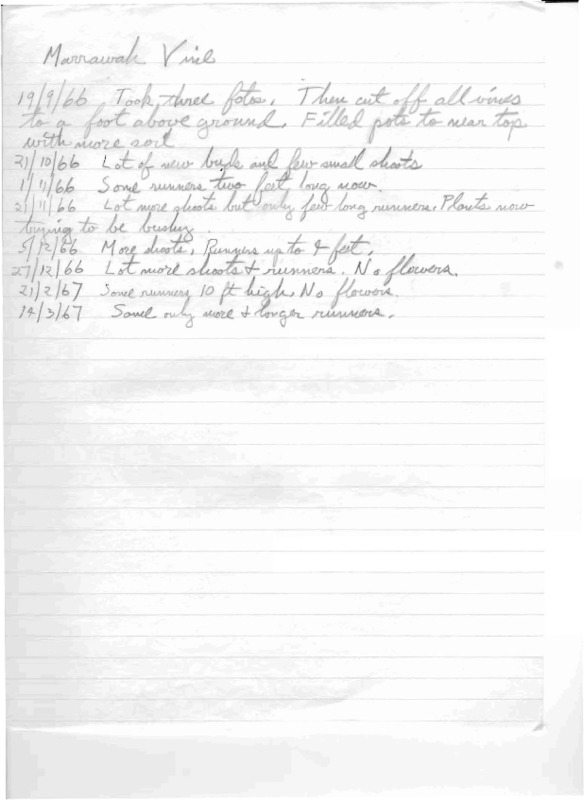 Marrawah Vine
19/9/66 Took three fotos. Then cut off all vines
to a foot above ground. Filled pots to near top
with more soil
21/10/66 Lot of new buds and few small shoots
1/11/66 Some runners two feet long now.
21/11/66 Lot more shoots but only few long runners. Plants now
trying to be bushy.
5/12/66 More shoots, Runners up to 4 feet.
27/12/66 Lot more shoots & runners. No flowers.
21/2/67 Some runners 10 ft high. No flowers.
14/3/67 Same only more & longer runners.